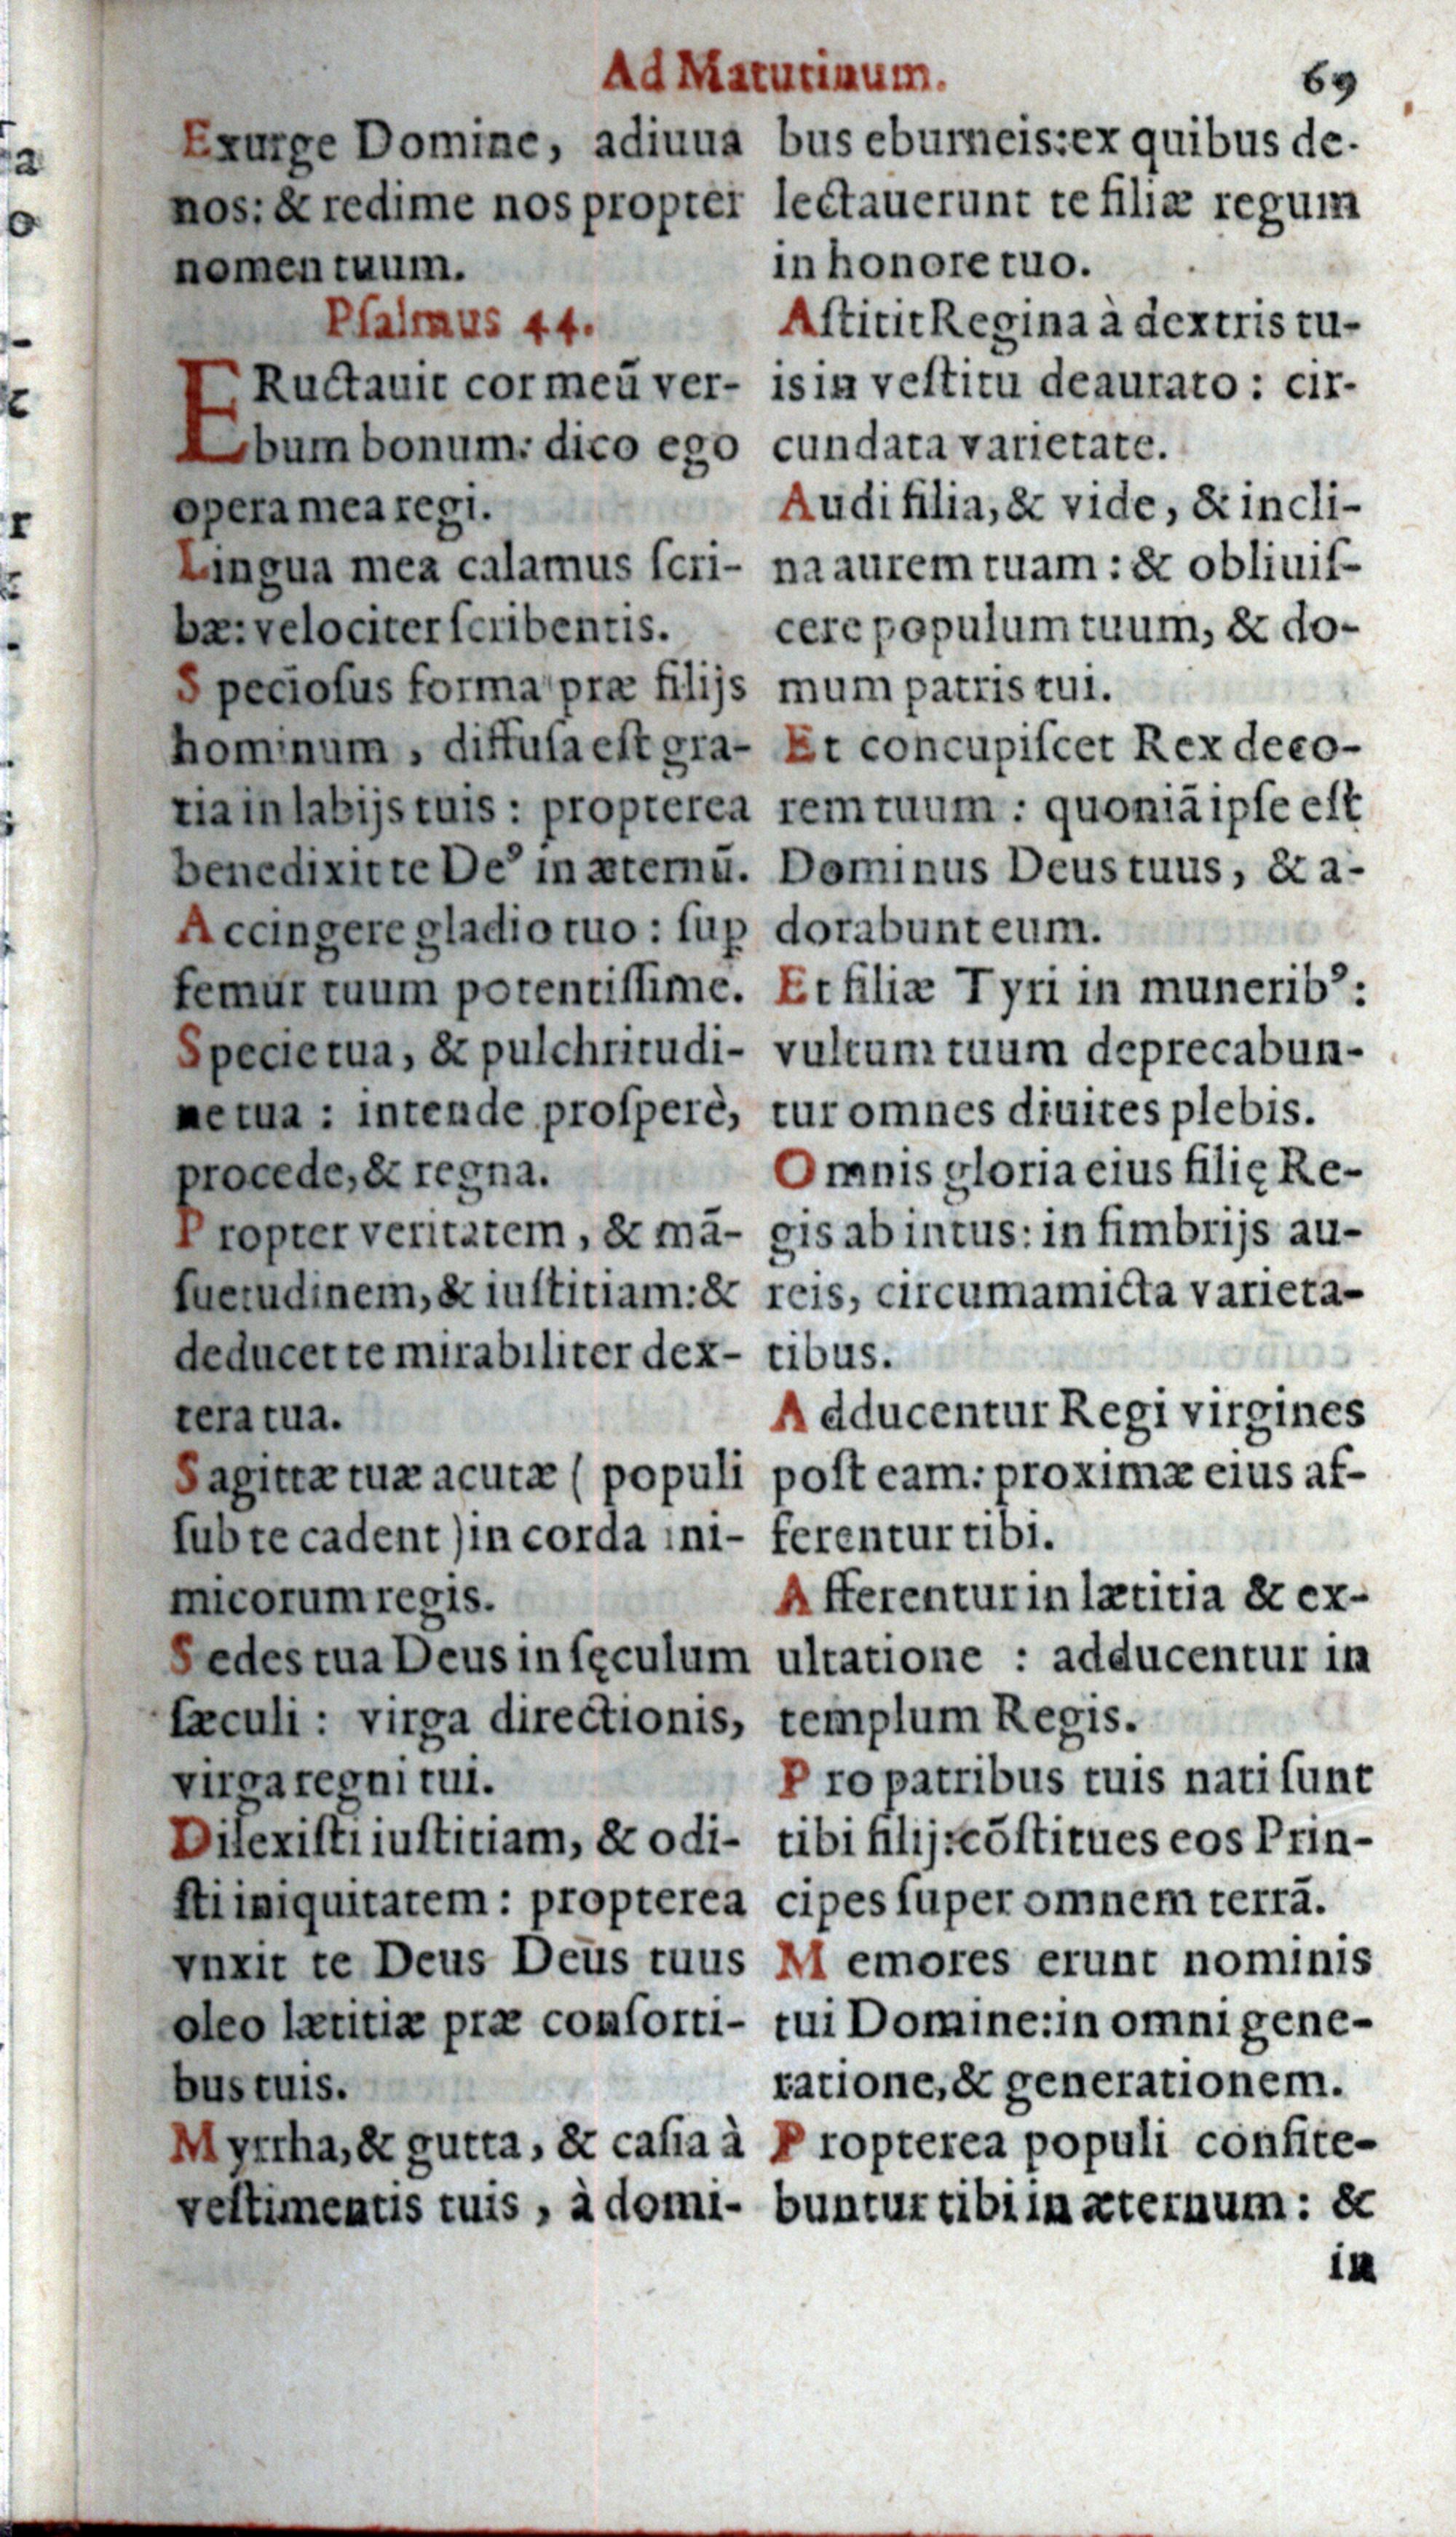 Ad Matutinum.
69
Exurge Domine, adiuua
nos: & redime nos propter
nomen tuum.
Pſalmus 44.
ERuctauit cor meū ver-
bum bonum: dico ego
opera mea regi.
Lingua mea calamus ſcri-
bæ: velociter ſcribentis.
Specioſus forma præ filijs
hominum, diffuſa eſt gra-
tia in labijs tuis: propterea
benedixit te Deꝰ in æternū.
Accingere gladio tuo: ſuꝑ
femur tuum potentiſſime.
Specie tua, & pulchritudi-
ne tua: intende proſperè,
procede, & regna.
Propter veritatem, & mā-
ſuetudinem, & iuſtitiam: &
deducet te mirabiliter dex-
tera tua.
Sagittæ tuæ acutæ (populi
ſub te cadent) in corda ini-
micorum regis.
Sedes tua Deus in ſęculum
ſæculi: virga directionis,
virga regni tui.
Dilexiſti iuſtitiam, & odi-
ſti iniquitatem: propterea
vnxit te Deus Deus tuus
oleo lætitiæ præ conſorti-
bus tuis.
Myrrha, & gutta, & caſia à
veſtimentis tuis, à domi-
bus eburneis: ex quibus de-
lectauerunt te filiæ regum
in honore tuo.
Aſtitit Regina à dextris tu-
is in veſtitu deaurato: cir-
cundata varietate.
Audi filia, & vide, & incli-
na aurem tuam: & obliuiſ-
cere populum tuum, & do-
mum patris tui.
Et concupiſcet Rex deco-
rem tuum: quoniā ipſe eſt
Dominus Deus tuus, & a-
dorabunt eum.
Et filiæ Tyri in muneribꝰ:
vultum tuum deprecabun-
tur omnes diuites plebis.
Omnis gloria eius filię Re-
gis ab intus: in fimbrijs au-
reis, circumamicta varieta-
tibus.
Adducentur Regi virgines
poſt eam: proximæ eius af-
ferentur tibi.
Afferentur in lætitia & ex-
ultatione: adducentur in
templum Regis.
Pro patribus tuis nati ſunt
tibi filij: cōſtitues eos Prin-
cipes ſuper omnem terrā.
Memores erunt nominis
tui Domine: in omni gene-
ratione, & generationem.
Propterea populi confite-
buntur tibi in æternum: &
in